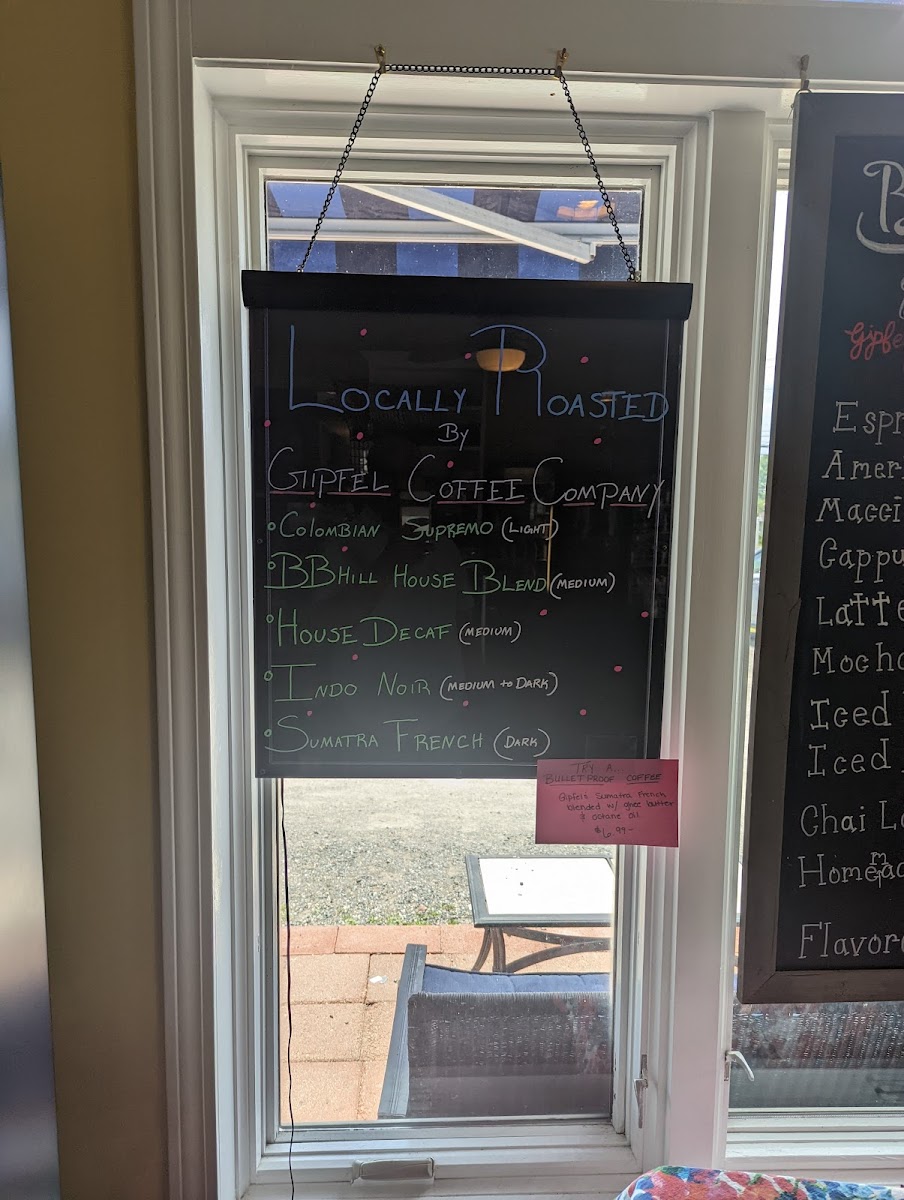 Locally Roasted
By
Gipfel Coffee Company
• Colombian Supremo (Light)
• BB Hill House Blend (medium)
• House Decaf (medium)
• Indo Noir (medium to Dark)
• Sumatra French (Dark)
Try a...
Bulletproof Coffee
Gipfels Sumatra French
blended w/ ghee butter
& octane oil.
$6.99~
Gipfe
Espr
Amer
Macci
Cappu
Latte
Mocha
Iced
Iced
Chai L
Homemad
Flavor